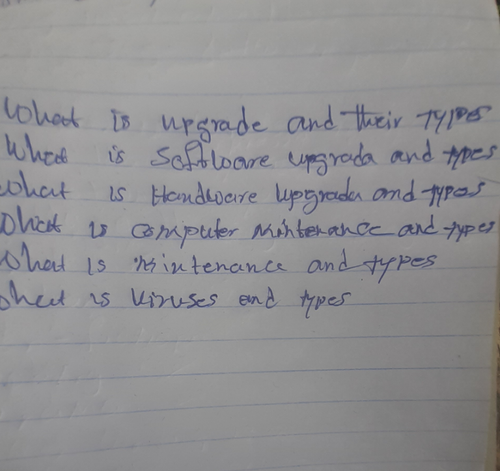 What is upgrade and their types
What is Software upgrada and types
what is Handware upgrada and types
What is computer maintenance and types
What is mintenance and types
what is Viruses and types